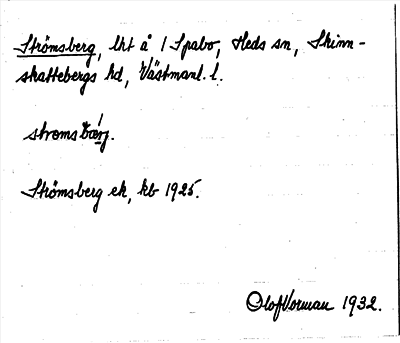 Strömsberg, lht å 1 Spabo, Heds sn, Skinn-
skattebergs hd, Västmanl. l.
strömsbærj.
Strömsberg ek, kb 1925.
Olof Vorman 1932.